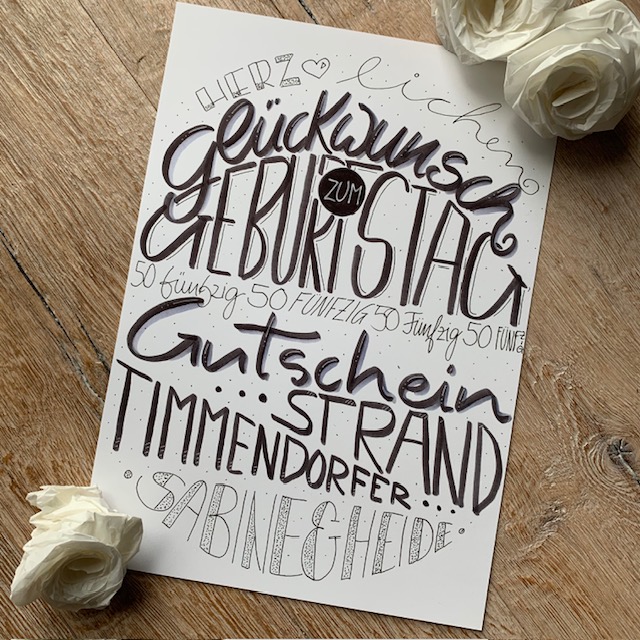 HERZ lichen
Glückwunsch
ZUM
GEBURTSTAG
50 fünfzig 50 FÜNFZIG 50 Fünfzig 50 FÜNFZIG
Gutschein
...STRAND
TIMMENDORFER...
SABINE & HEIDE